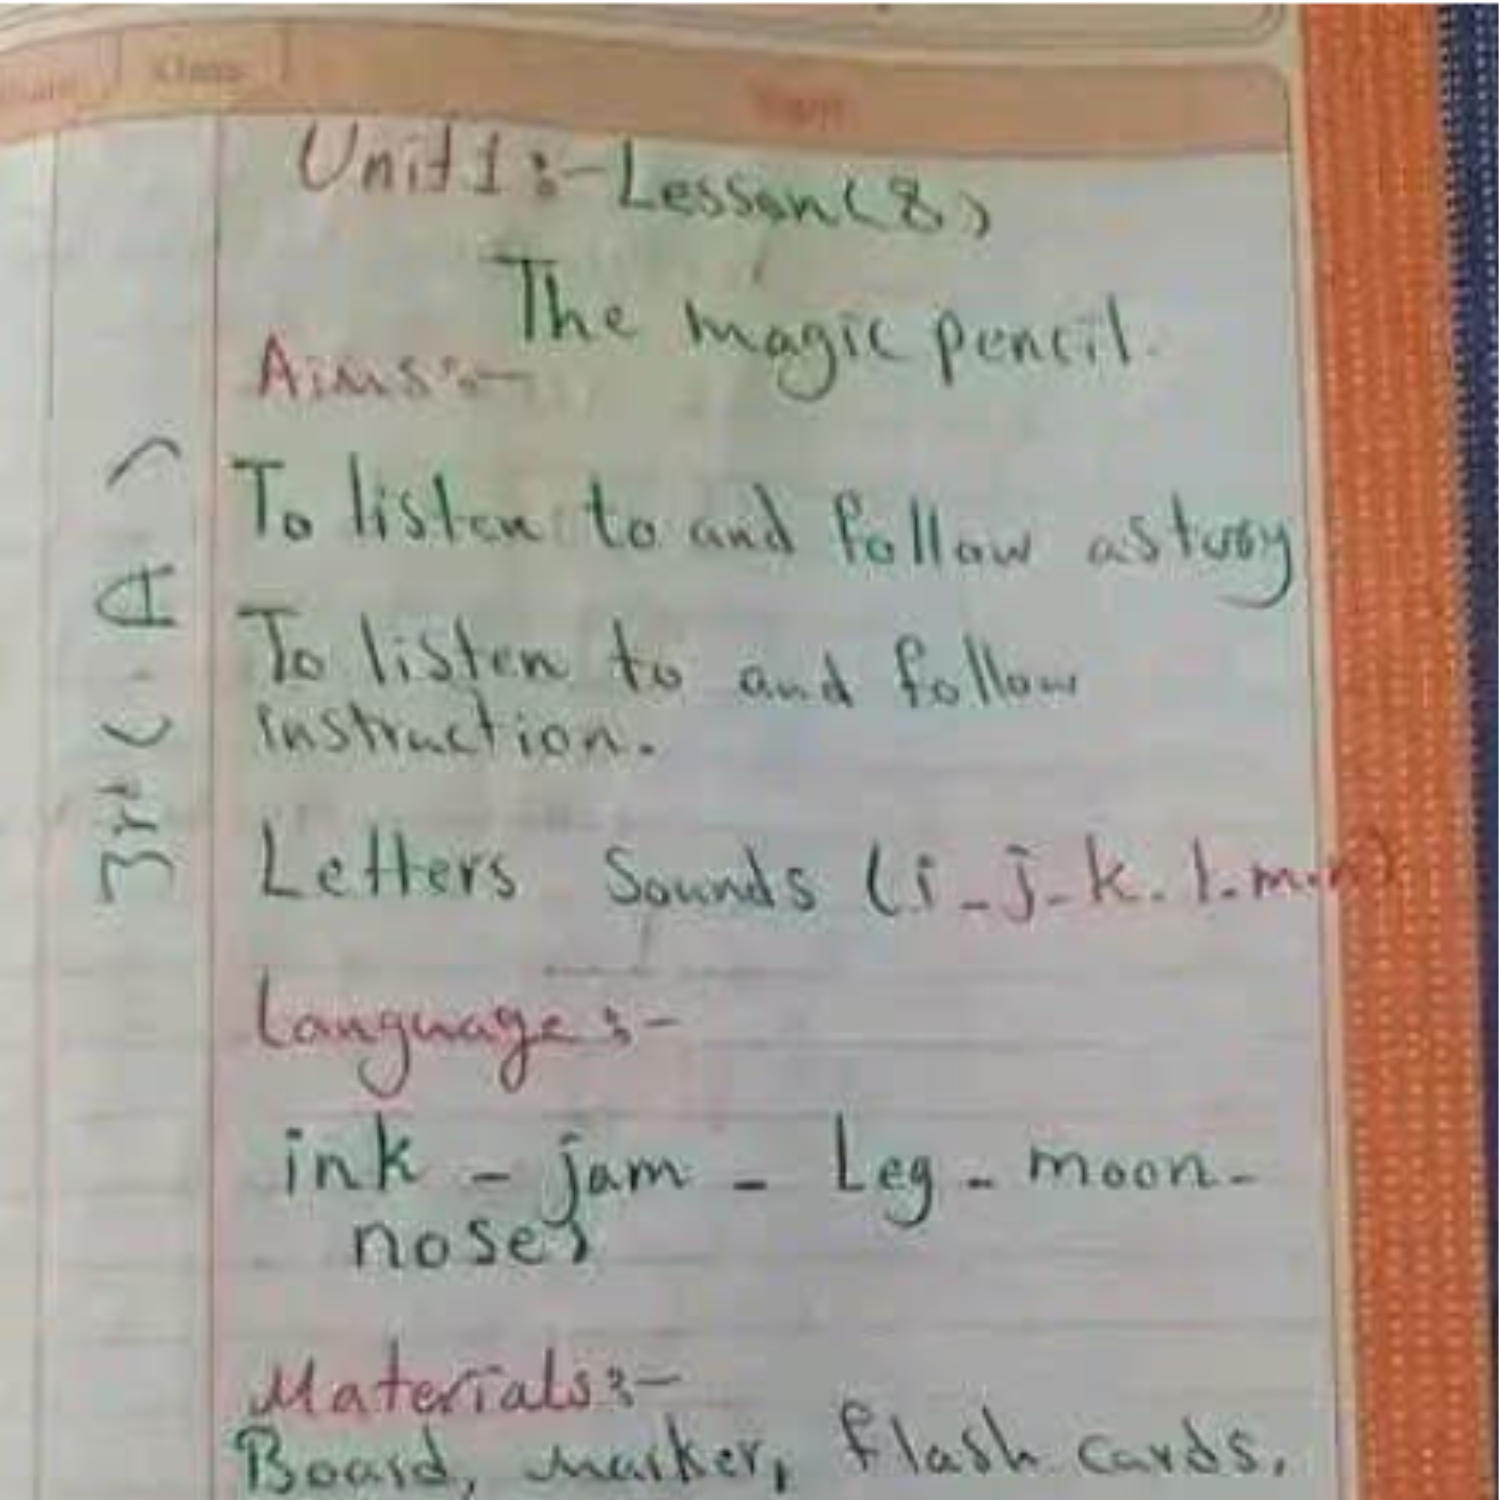 Unit 1:- Lesson (8)
The magic pencil.
Aims:-
3rd (A)
To listen to and follow a story
To listen to and follow
instruction.
Letters Sounds (i - j - k - l - m - n)
Language:-
ink - jam - Leg - moon -
nose
Materials:-
Board, marker, flash cards.